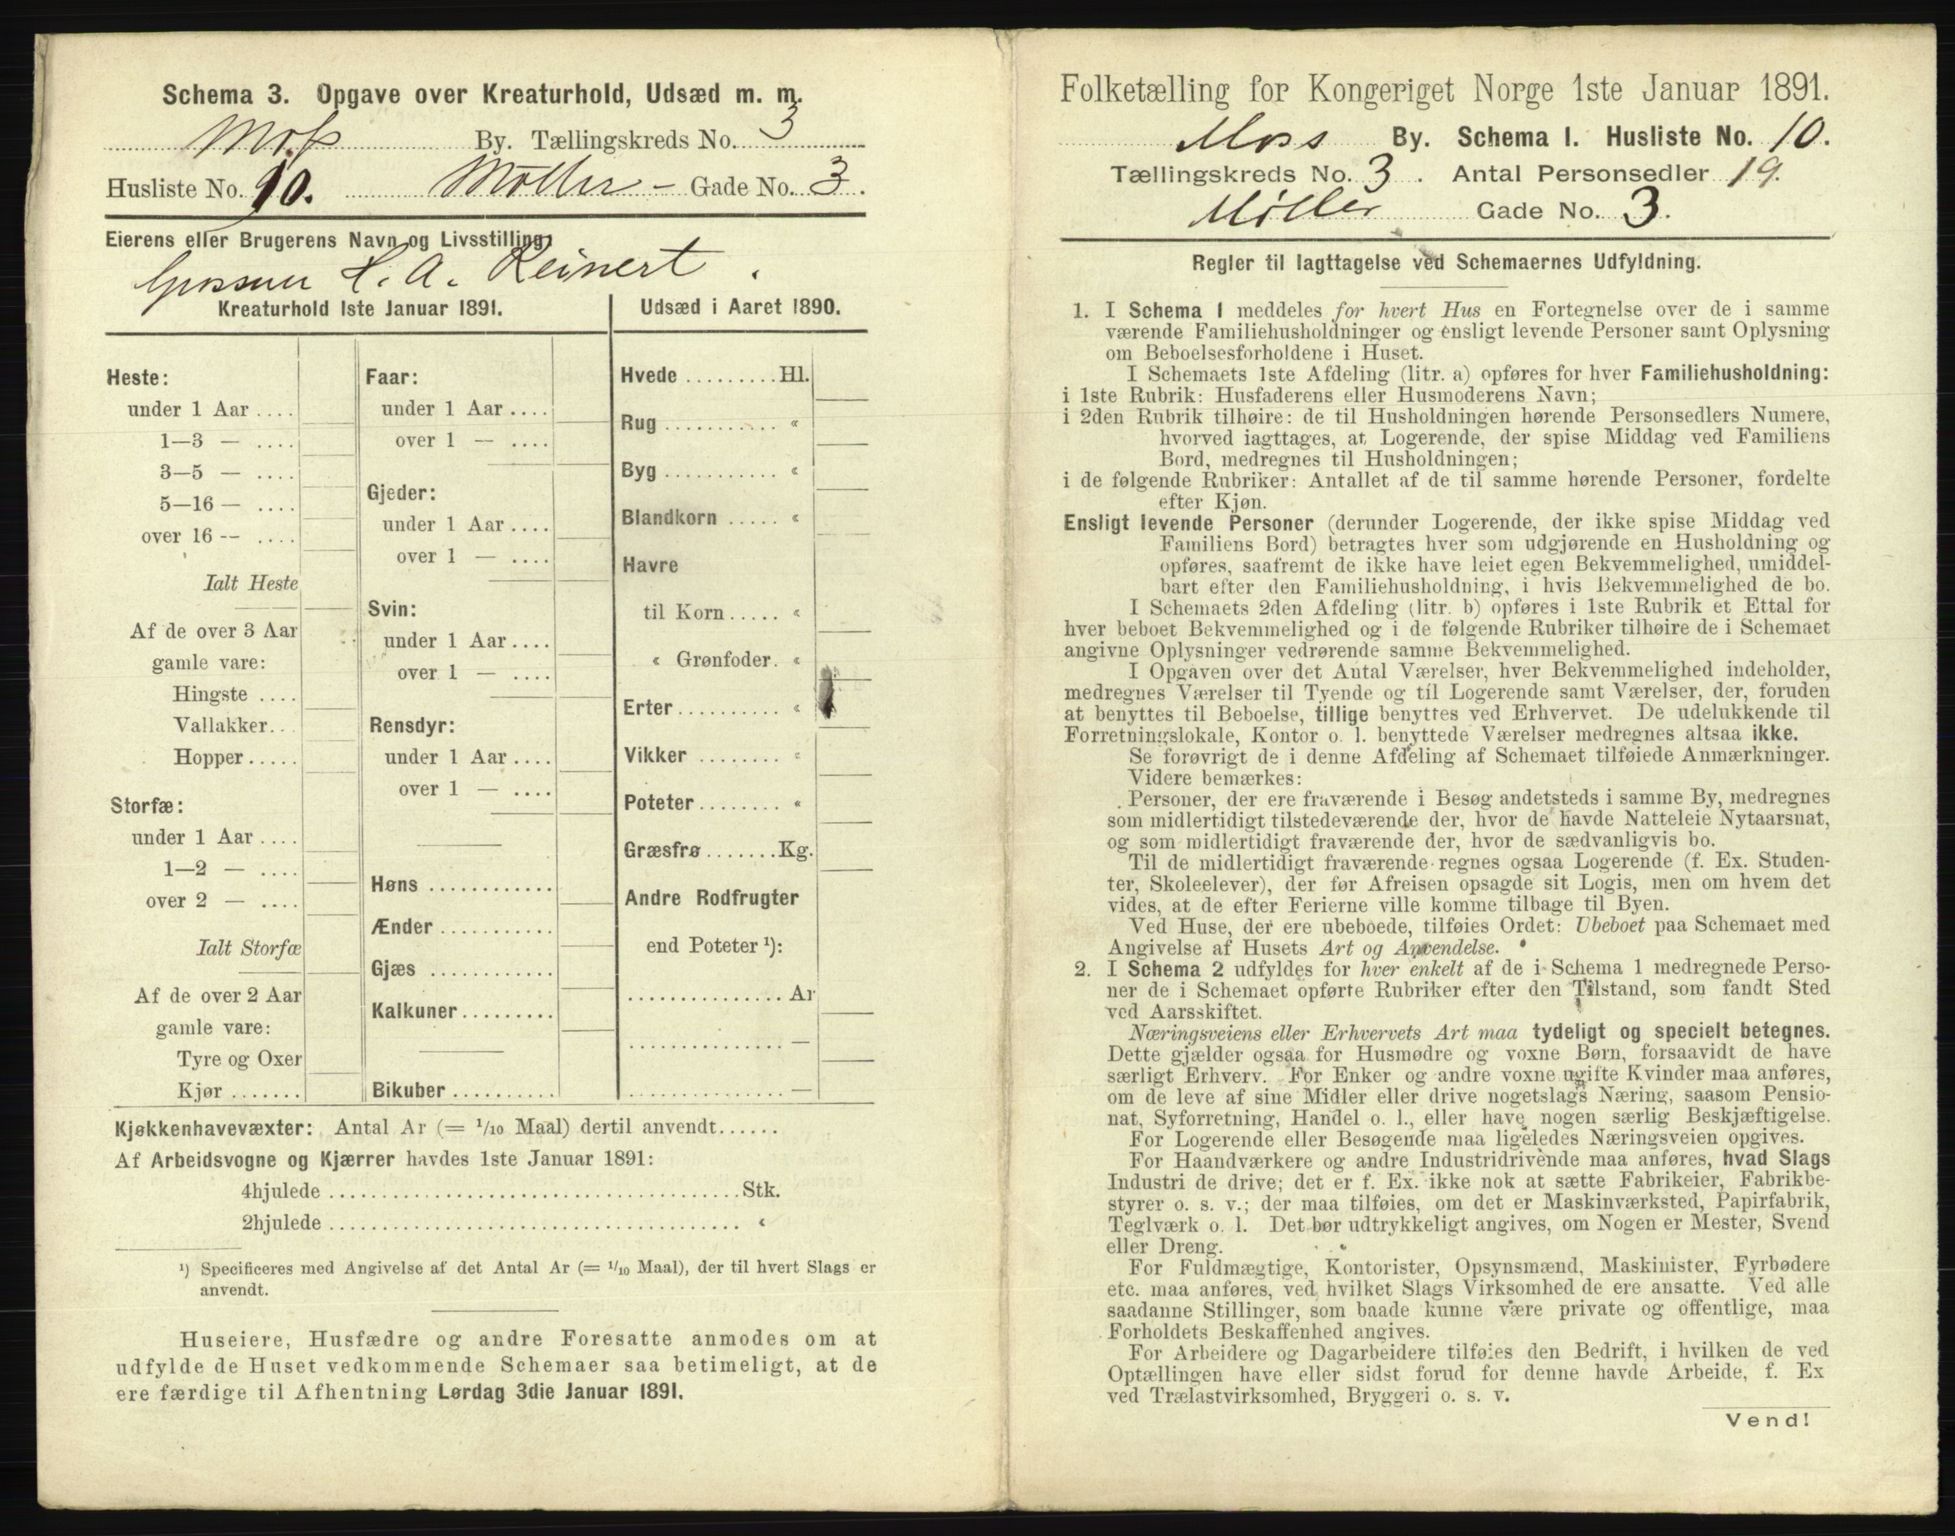 Schema 3. Opgave over Kreaturhold, Udsæd m. m.
Moss By. Tællingskreds No. 3
Husliste No. 10. Möller - Gade No. 3.
Eierens eller Brugerens Navn og Livsstilling:
H. A. Reinert.
Kreaturhold 1ste Januar 1891.
Heste:
under 1 Aar ....
1—3 — ....
3—5 — ....
5—16 — ....
over 16 — ....
Ialt Heste
Af de over 3 Aar
gamle vare:
Hingste ....
Vallakker...
Hopper.....
Storfæ:
under 1 Aar ....
1—2 — ....
over 2 — ....
Ialt Storfæ
Af de over 2 Aar
gamle vare:
Tyre og Oxer
Kjør .......
Faar:
under 1 Aar ....
over 1 — ....
Gjeder:
under 1 Aar ....
over 1 — ....
Svin:
under 1 Aar ....
over 1 — ....
Rensdyr:
under 1 Aar ....
over 1 — ....
Høns ............
Ænder ...........
Gjæs ............
Kalkuner.........
Bikuber ..........
Udsæd i Aaret 1890.
Hvede .........Hl.
Rug ........... «
Byg ........... «
Blandkorn ..... «
Havre
til Korn..... «
« Grønfoder. «
Erter.......... «
Vikker ........ «
Poteter........ «
Græsfrø .......Kg.
Andre Rodfrugter
end Poteter ¹):
............... Ar
............... —
............... —
Kjøkkenhavevæxter: Antal Ar (= 1/10 Maal) dertil anvendt......
Af Arbeidsvogne og Kjærrer havdes 1ste Januar 1891:
4hjulede ........................................Stk.
2hjulede ........................................ «
¹) Specificeres med Angivelse af det Antal Ar (= 1/10 Maal), der til hvert Slags er
anvendt.
Huseiere, Husfædre og andre Foresatte anmodes om at
udfylde de Huset vedkommende Schemaer saa betimeligt, at de
ere færdige til Afhentning Lørdag 3die Januar 1891.
Folketælling for Kongeriget Norge 1ste Januar 1891.
Moss By. Schema I. Husliste No. 10.
Tællingskreds No. 3. Antal Personsedler 19.
Møller Gade No. 3.
Regler til Iagttagelse ved Schemaernes Udfyldning.
1. I Schema 1 meddeles for hvert Hus en Fortegnelse over de i samme
værende Familiehusholdninger og ensligt levende Personer samt Oplysning
om Beboelsesforholdene i Huset.
I Schemaets 1ste Afdeling (litr. a) opføres for hver Familiehusholdning:
i 1ste Rubrik: Husfaderens eller Husmoderens Navn;
i 2den Rubrik tilhøire: de til Husholdningen hørende Personsedlers Numere,
hvorved iagttages, at Logerende, der spise Middag ved Familiens
Bord, medregnes til Husholdningen;
i de følgende Rubriker: Antallet af de til samme hørende Personer, fordelte
efter Kjøn.
Ensligt levende Personer (derunder Logerende, der ikke spise Middag ved
Familiens Bord) betragtes hver som udgjørende en Husholdning og
opføres, saafremt de ikke have leiet egen Bekvemmelighed, umiddel-
bart efter den Familiehusholdning, i hvis Bekvemmelighed de bo.
I Schemaets 2den Afdeling (litr. b) opføres i 1ste Rubrik et Ettal for
hver beboet Bekvemmelighed og i de følgende Rubriker tilhøire de i Schemaet
angivne Oplysninger vedrørende samme Bekvemmelighed.
I Opgaven over det Antal Værelser, hver Bekvemmelighed indeholder,
medregnes Værelser til Tyende og til Logerende samt Værelser, der, foruden
at benyttes til Beboelse, tillige benyttes ved Erhvervet. De udelukkende til
Forretningslokale, Kontor o. l. benyttede Værelser medregnes altsaa ikke.
Se forøvrigt de i denne Afdeling af Schemaet tilføiede Anmærkninger.
Videre bemærkes:
Personer, der ere fraværende i Besøg andetsteds i samme By, medregnes
som midlertidigt tilstedeværende der, hvor de havde Natteleie Nytaarsnat,
og som midlertidigt fraværende der, hvor de sædvanligvis bo.
Til de midlertidigt fraværende regnes ogsaa Logerende (f. Ex. Studen-
ter, Skoleelever), der før Afreisen opsagde sit Logis, men om hvem det
vides, at de efter Ferierne ville komme tilbage til Byen.
Ved Huse, der ere ubeboede, tilføies Ordet: Ubeboet paa Schemaet med
Angivelse af Husets Art og Anvendelse.
2. I Schema 2 udfyldes for hver enkelt af de i Schema 1 medregnede Perso-
ner de i Schemaet opførte Rubriker efter den Tilstand, som fandt Sted
ved Aarsskiftet.
Næringsveiens eller Erhvervets Art maa tydeligt og specielt betegnes.
Dette gjælder ogsaa for Husmødre og voxne Børn, forsaavidt de have
særligt Erhverv. For Enker og andre voxne ugifte Kvinder maa anføres,
om de leve af sine Midler eller drive nogetslags Næring, saasom Pensio-
nat, Syforretning, Handel o. l., eller have nogen særlig Beskjæftigelse.
For Logerende eller Besøgende maa ligeledes Næringsveien opgives.
For Haandværkere og andre Industridrivende maa anføres, hvad Slags
Industri de drive; det er f. Ex. ikke nok at sætte Fabrikeier, Fabrikbe-
styrer o. s. v.; der maa tilføies, om det er Maskinværksted, Papirfabrik,
Teglværk o. l. Det bør udtrykkeligt angives, om Nogen er Mester, Svend
eller Dreng.
For Fuldmægtige, Kontorister, Opsynsmænd, Maskinister, Fyrbødere
etc. maa anføres, ved hvilket Slags Virksomhed de ere ansatte. Ved alle
saadanne Stillinger, som baade kunne være private og offentlige, maa
Forholdets Beskaffenhed angives.
For Arbeidere og Dagarbeidere tilføies den Bedrift, i hvilken de ved
Optællingen have eller sidst forud for denne havde Arbeide, f. Ex
ved Trælastvirksomhed, Bryggeri o. s. v.
Vend!